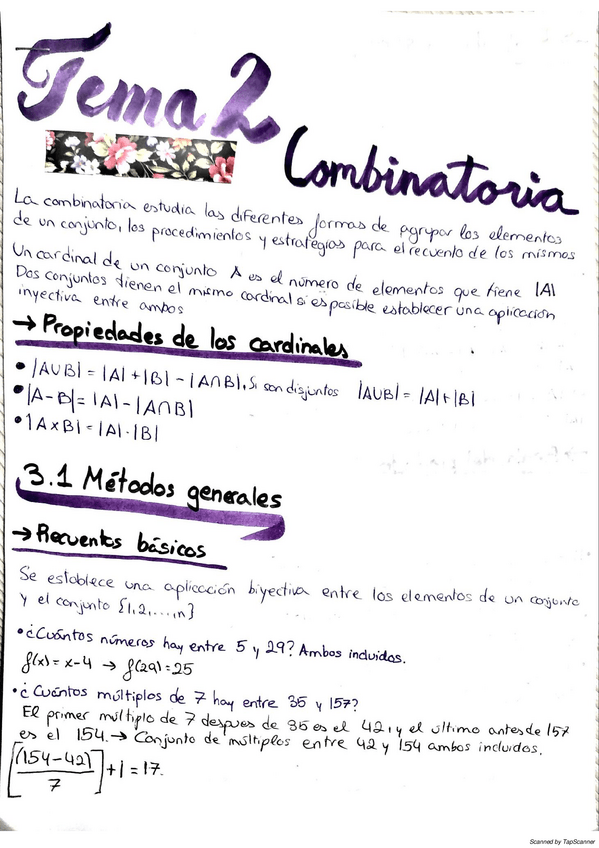 Tema 2
Combinatoria
La combinatoria estudia las diferentes formas de agrupar los elementos
de un conjunto, los procedimientos y estrategias para el recuento de los mismos
Un cardinal de un conjunto A es el número de elementos que tiene |A|
Dos conjuntos tienen el mismo cardinal si es posible establecer una aplicación
inyectiva entre ambos
→ Propiedades de los cardinales
• |A∪B| = |A| + |B| - |A∩B|, Si son disjuntos |A∪B| = |A| + |B|
• |A-B| = |A| - |A∩B|
• |A×B| = |A|·|B|
3.1 Métodos generales
→ Recuentos básicos
Se establece una aplicación biyectiva entre los elementos de un conjunto
y el conjunto {1,2,...,n}
• ¿Cuántos números hay entre 5 y 29? Ambos incluidos.
f(x) = x-4 → f(29) = 25
• ¿Cuántos múltiplos de 7 hay entre 35 y 157?
El primer múltiplo de 7 despues de 35 es el 42, y el último antes de 157
es el 154. → Conjunto de múltiplos entre 42 y 154 ambos incluidos.
[(154-42)/7] + 1 = 17.
Scanned by TapScanner